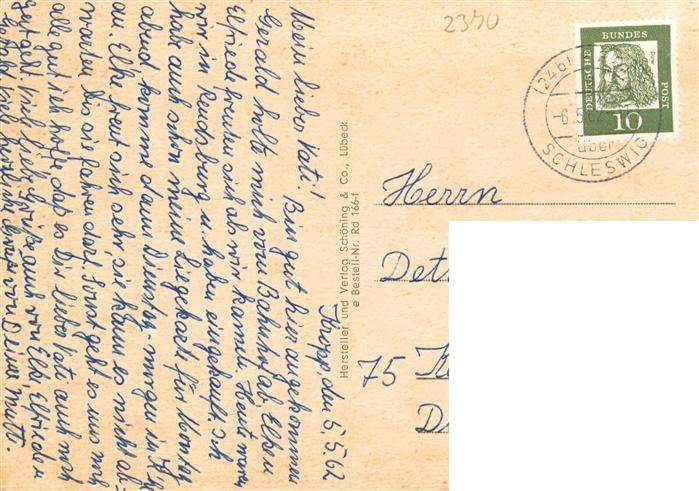 Kropp, den 5.5.62
Mein lieber Vati! Bin gut hier angekommen
Gerald holte mich vom Bahnhof ab. Elke u
Elfriede freuten sich als wir kamen. Heute waren
wir in Rendsburg u. haben eingekauft. Ich
hab auch schon meine Liegekarte für Montag
abend komme dann Dienstag-morgen in
an. Elke freut sich sehr, sie kann es nicht ab-
warten bis sie fahren darf. Sonst geht es uns noch
alle gut ich hoff, daß es Dir lieber Vati auch noch
gut geht. Viel liebe Grüße auch von Elke, Elfriede u
Gerald. Viel herzlich Grüße von Deiner Mutti.
Hersteller und Verlag Schöning & Co., Lübeck
e Bestell-Nr. Rd 166-1
2370
DEUTSCHE BUNDES POST
10
(24b)
-6.5.62
über
SCHLESWIG
Herrn
Det
75 K
D